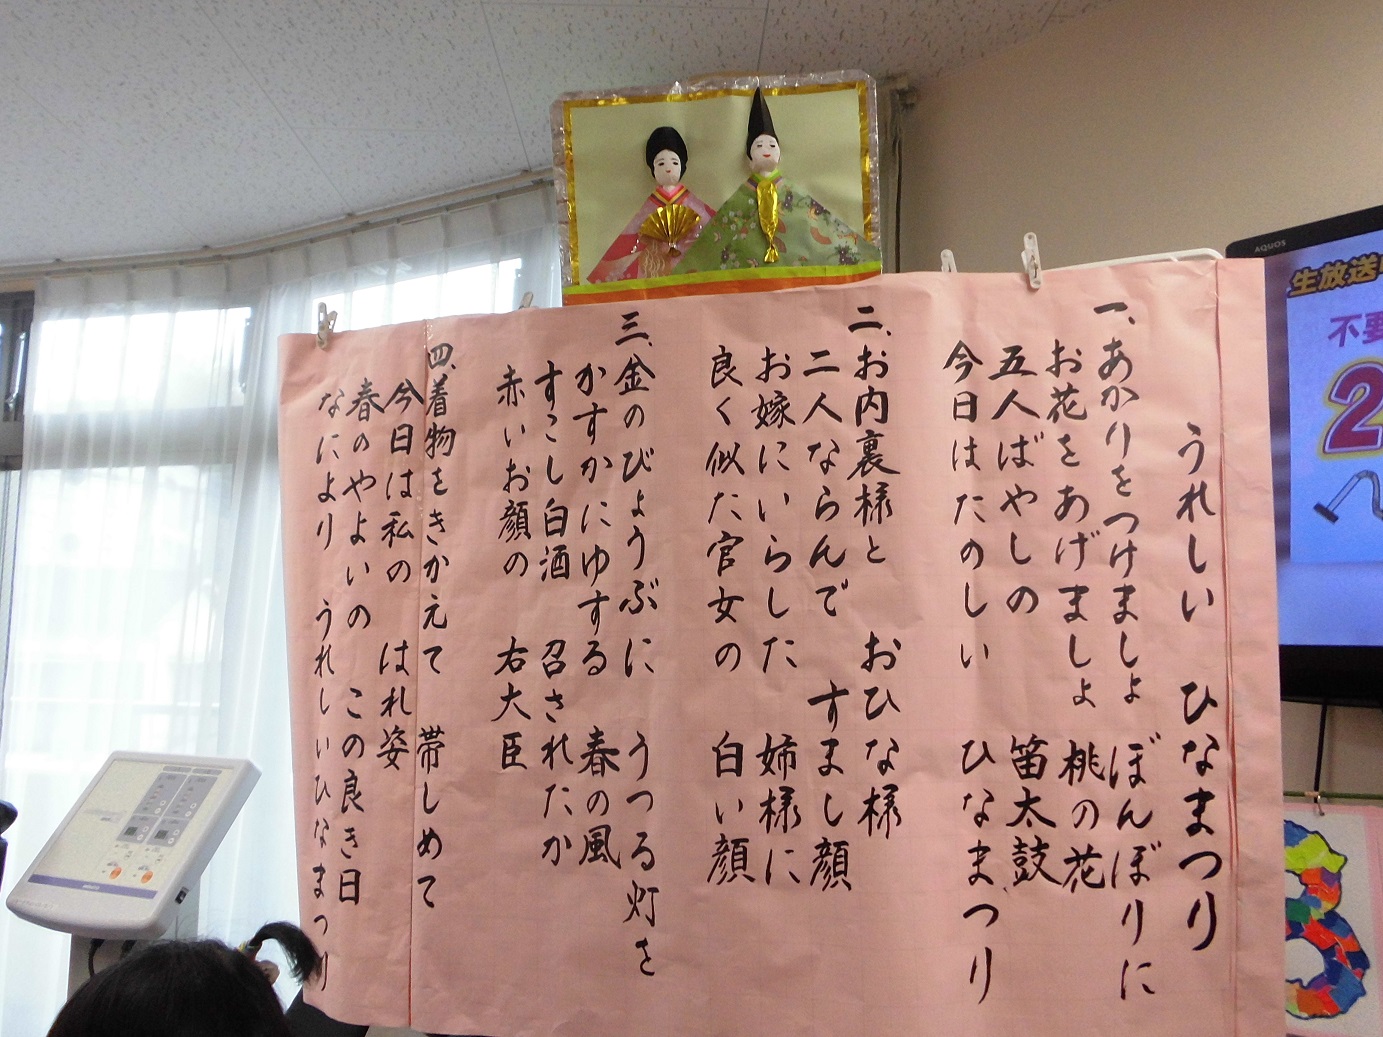 うれしい ひなまつり
一、あかりをつけましょ ぼんぼりに
お花をあげましょ 桃の花
五人ばやしの 笛太鼓
今日はたのしい ひなまつり
二、お内裏様と おひな様
二人ならんで すまし顔
お嫁にいらした 姉様に
良く似た官女の 白い顔
三、金のびょうぶに うつる灯を
かすかにゆする 春の風
すこし白酒 召されたか
赤いお顔の 右大臣
四、着物をきかえて 帯しめて
今日は私の はれ姿
春のやよいの この良き日
なにより うれしいひなまつり
AQUOS
生放送
不要
2
3